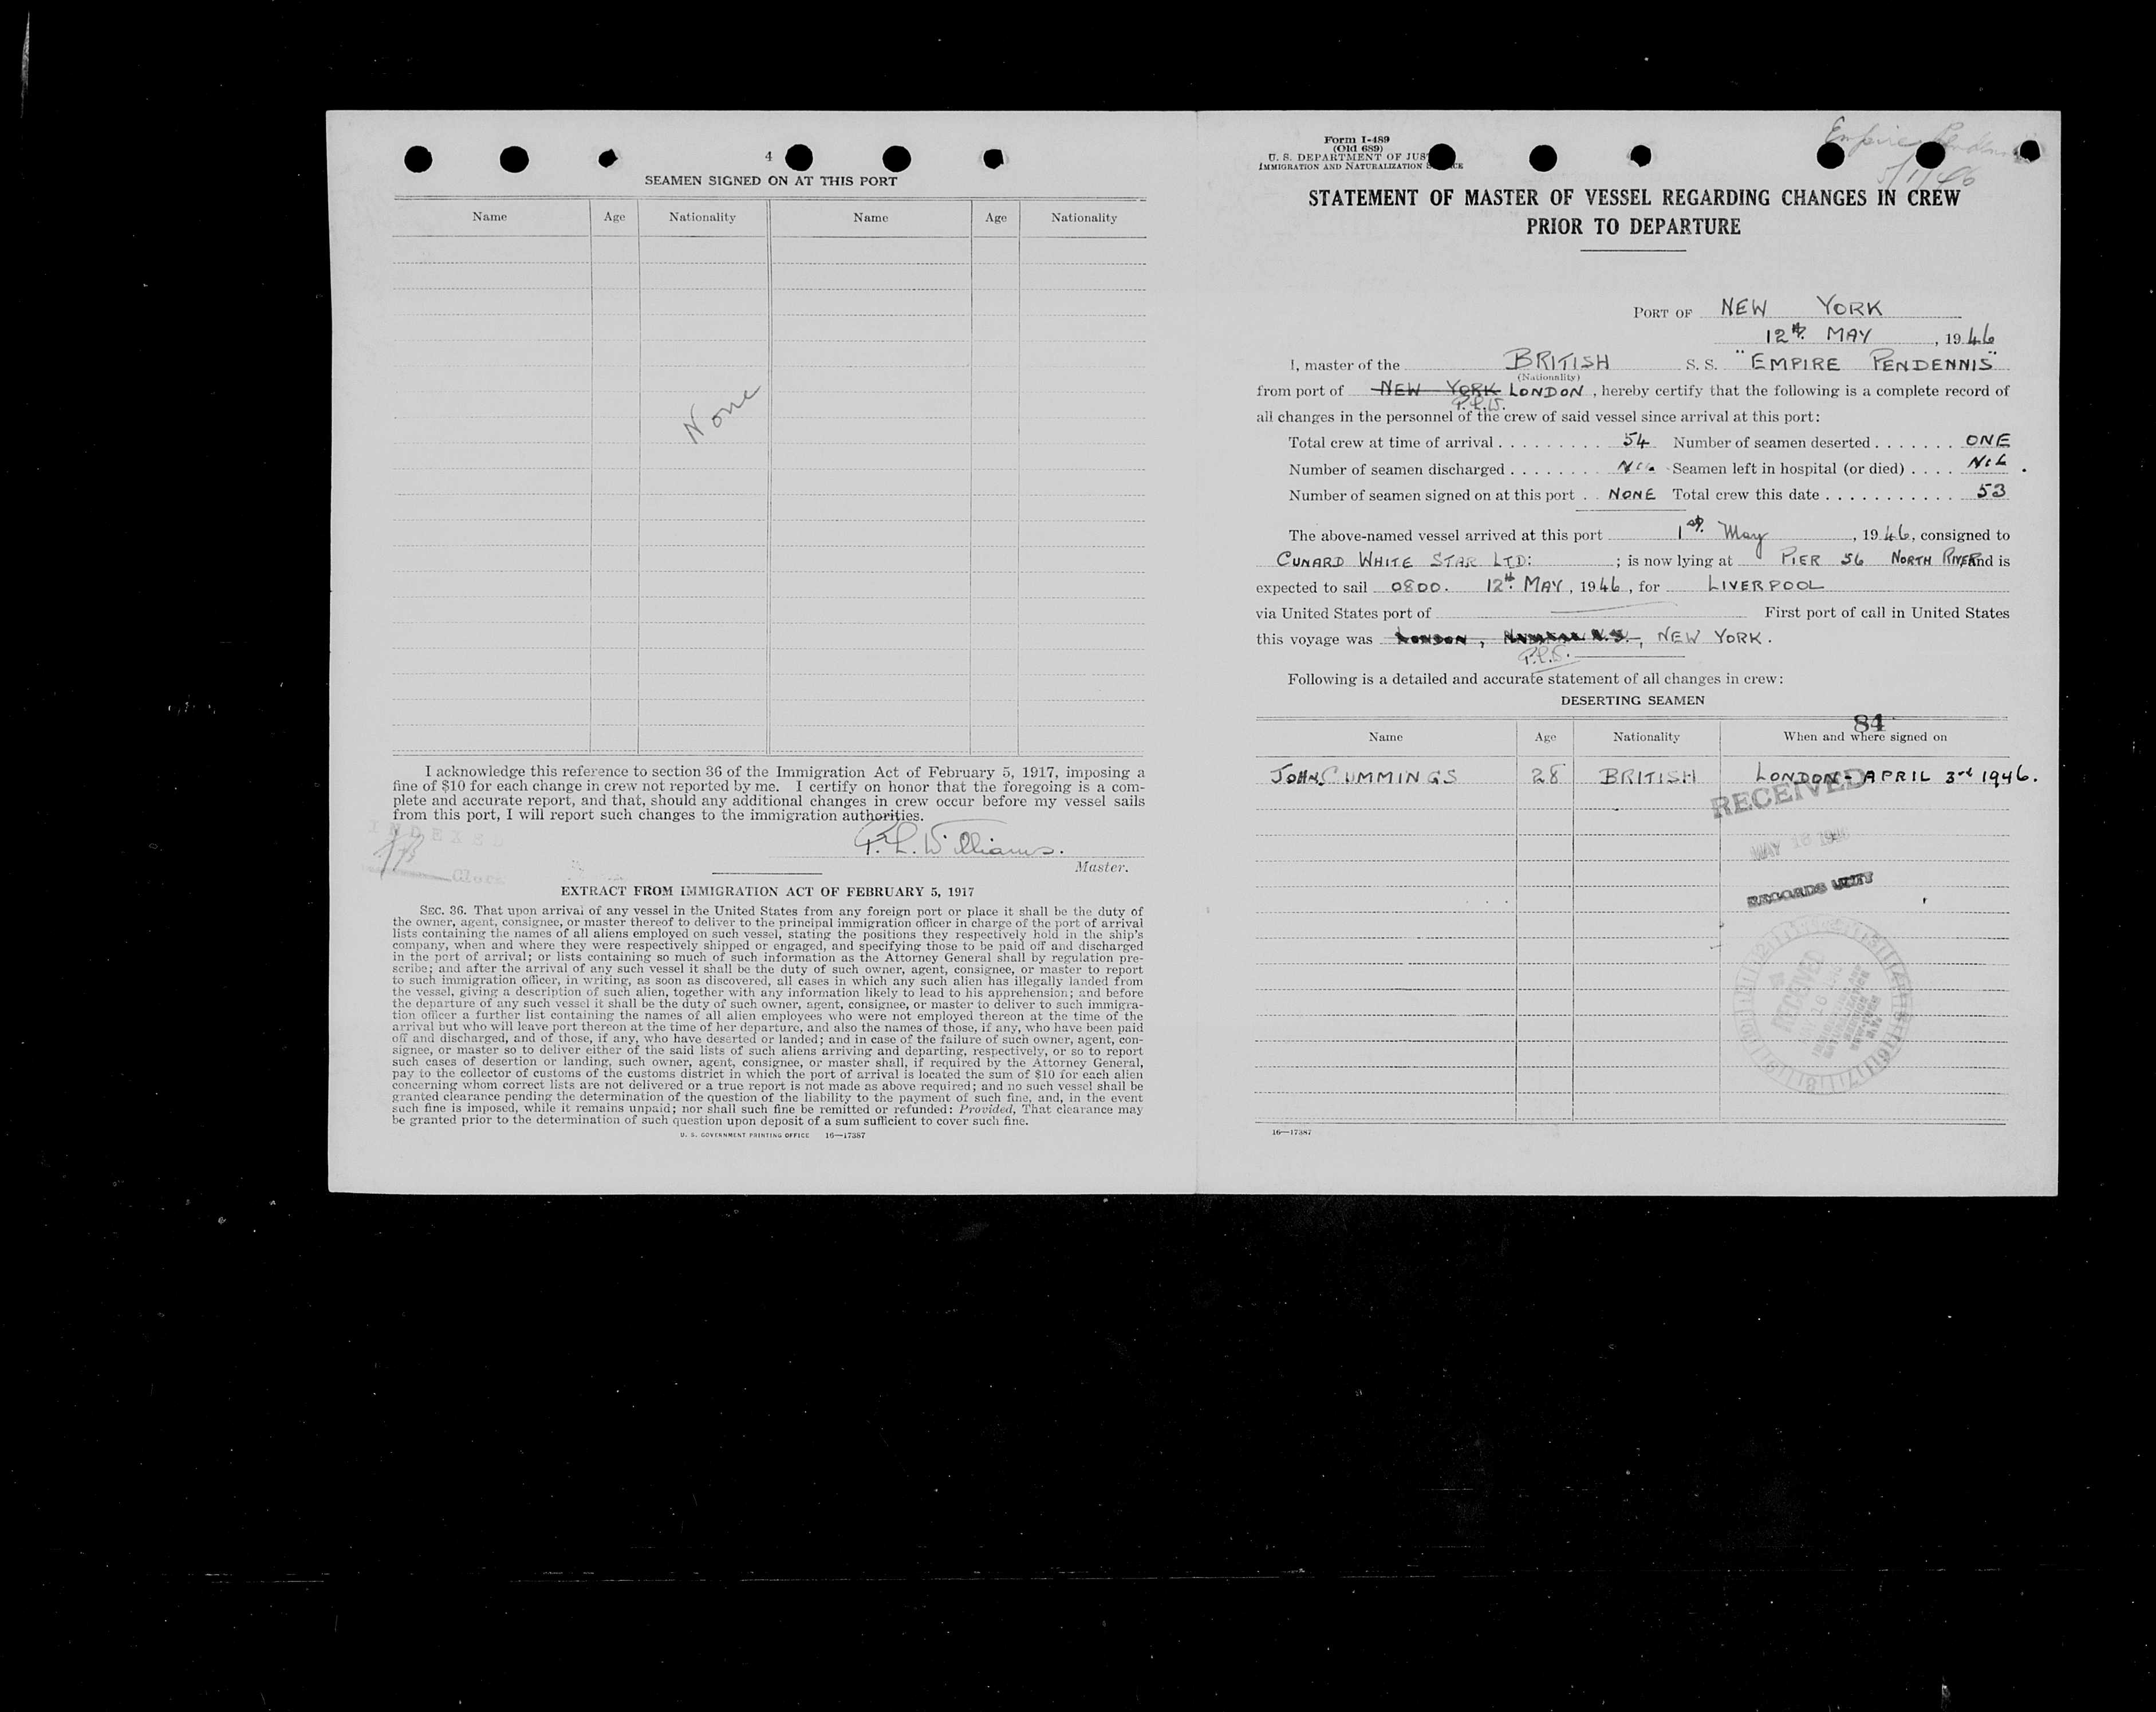 4
SEAMEN SIGNED ON AT THIS PORT
Name Age Nationality Name Age Nationality
None
I acknowledge this reference to section 36 of the Immigration Act of February 5, 1917, imposing a
fine of $10 for each change in crew not reported by me. I certify on honor that the foregoing is a com-
plete and accurate report, and that, should any additional changes in crew occur before my vessel sails
from this port, I will report such changes to the immigration authorities.
INDEXED
P. L. Williams.
Master.
EXTRACT FROM IMMIGRATION ACT OF FEBRUARY 5, 1917
SEC. 36. That upon arrival of any vessel in the United States from any foreign port or place it shall be the duty of
the owner, agent, consignee, or master thereof to deliver to the principal immigration officer in charge of the port of arrival
lists containing the names of all aliens employed on such vessel, stating the positions they respectively hold in the ship's
company, when and where they were respectively shipped or engaged, and specifying those to be paid off and discharged
in the port of arrival; or lists containing so much of such information as the Attorney General shall by regulation pre-
scribe; and after the arrival of any such vessel it shall be the duty of such owner, agent, consignee, or master to report
to such immigration officer, in writing, as soon as discovered, all cases in which any such alien has illegally landed from
the vessel, giving a description of such alien, together with any information likely to lead to his apprehension; and before
the departure of any such vessel it shall be the duty of such owner, agent, consignee, or master to deliver to such immigra-
tion officer a further list containing the names of all alien employees who were not employed thereon at the time of the
arrival but who will leave port thereon at the time of her departure, and also the names of those, if any, who have been paid
off and discharged, and of those, if any, who have deserted or landed; and in case of the failure of such owner, agent, con-
signee, or master so to deliver either of the said lists of such aliens arriving and departing, respectively, or so to report
such cases of desertion or landing, such owner, agent, consignee, or master shall, if required by the Attorney General,
pay to the collector of customs of the customs district in which the port of arrival is located the sum of $10 for each alien
concerning whom correct lists are not delivered or a true report is not made as above required; and no such vessel shall be
granted clearance pending the determination of the question of the liability to the payment of such fine, and, in the event
such fine is imposed, while it remains unpaid; nor shall such fine be remitted or refunded: Provided, That clearance may
be granted prior to the determination of such question upon deposit of a sum sufficient to cover such fine.
U. S. GOVERNMENT PRINTING OFFICE 16—17387
Form I-489
(Old 689)
U. S. DEPARTMENT OF JUS
IMMIGRATION AND NATURALIZATION
Empire Pendennis
5/1/46
STATEMENT OF MASTER OF VESSEL REGARDING CHANGES IN CREW
PRIOR TO DEPARTURE
PORT OF NEW YORK
12th. MAY, 1946
I, master of the BRITISH S. S. "EMPIRE PENDENNIS"
(Nationality)
from port of NEW YORK LONDON, hereby certify that the following is a complete record of
P.L.W.
all changes in the personnel of the crew of said vessel since arrival at this port:
Total crew at time of arrival . . . . . . . . . 54 Number of seamen deserted . . . . . . . ONE
Number of seamen discharged . . . . . . . . NIL Seamen left in hospital (or died) . . . . NIL.
Number of seamen signed on at this port . . NONE Total crew this date . . . . . . . . . . . 53
The above-named vessel arrived at this port 1st. May, 1946, consigned to
CUNARD WHITE STAR LTD: ; is now lying at PIER 56 NORTH RIVER and is
expected to sail 0800. 12th. MAY, 1946, for LIVERPOOL
via United States port of First port of call in United States
this voyage was LONDON, NEW YORK.
Following is a detailed and accurate statement of all changes in crew:
DESERTING SEAMEN
84
Name Age Nationality When and where signed on
JOHN CUMMINGS 28 BRITISH LONDON - APRIL 3rd 1946.
RECEIVED
MAY 16 1946
RECORDS UNIT
RECEIVED
16—17387